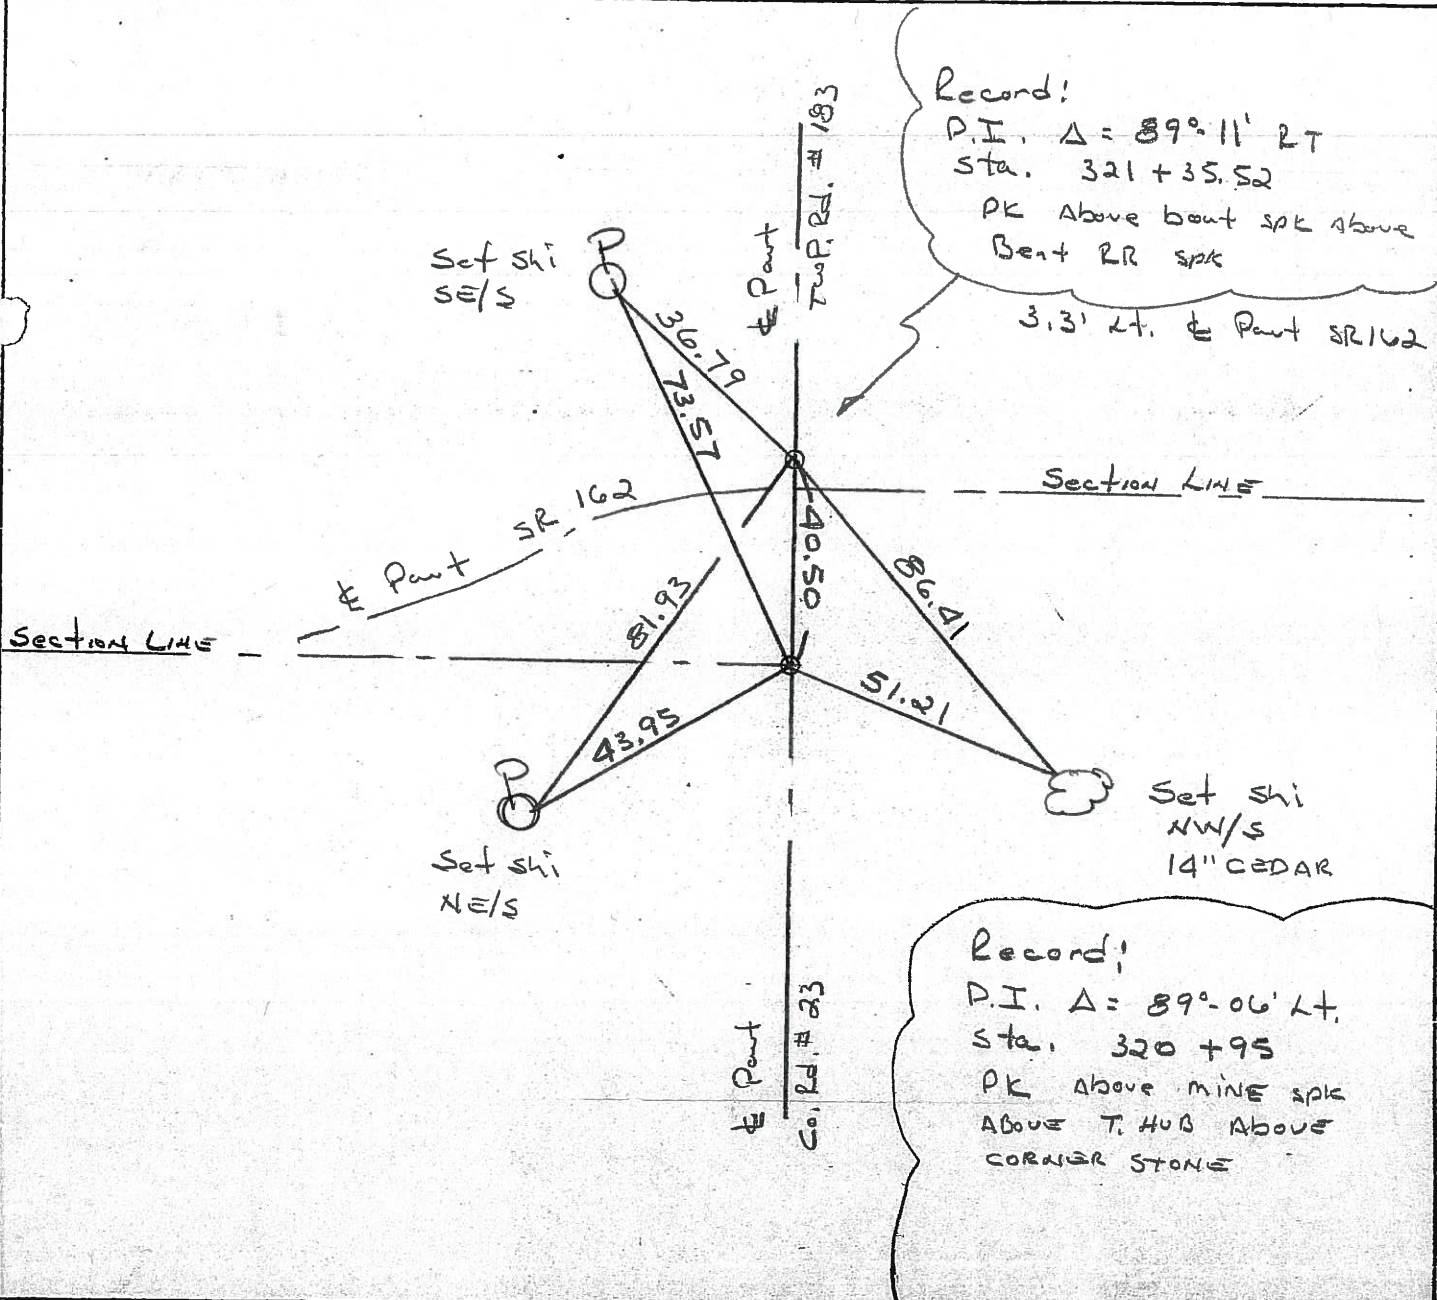 Record!
P.I. Δ = 89°-11' RT
Sta. 321 + 35.52
PK Above bent spk above
Bent RR spk
3.3' Lt. ℄ Pavt SR 162
℄ Pavt
Twp. Rd. # 183
Set shi
SE/S
P
36.79
73.57
Section Line
℄ Pavt SR 162
40.50
86.41
81.93
Section Line
51.21
43.95
P
Set shi
NE/S
Set shi
NW/S
14" CEDAR
℄ Pavt
Co. Rd. # 23
Record!
P.I. Δ = 89°-06' Lt.
Sta. 320 + 95
PK Above MINE spk
ABOVE T. HUB ABOVE
CORNER STONE